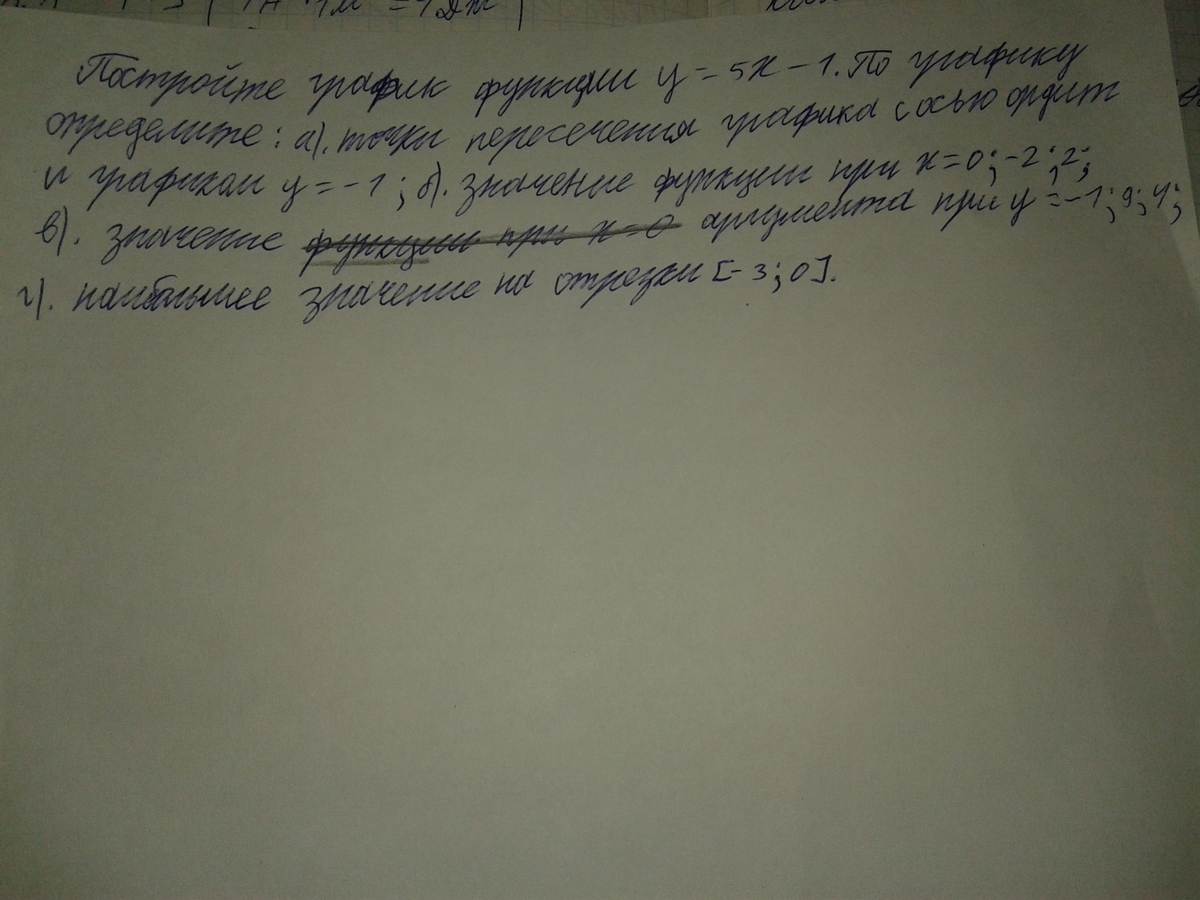 1 Н · 1 м = 1 Дж
Постройте график функции y = 5x - 1. По графику
определите: а). точки пересечения графика с осью ордит
и графиком y = -1; б). значение функции при x = 0; -2; 2;
в). значение функции при x = 0 аргумента при y = -1; 9; 4;
г). наибольшее значение на отрезки [-3; 0].